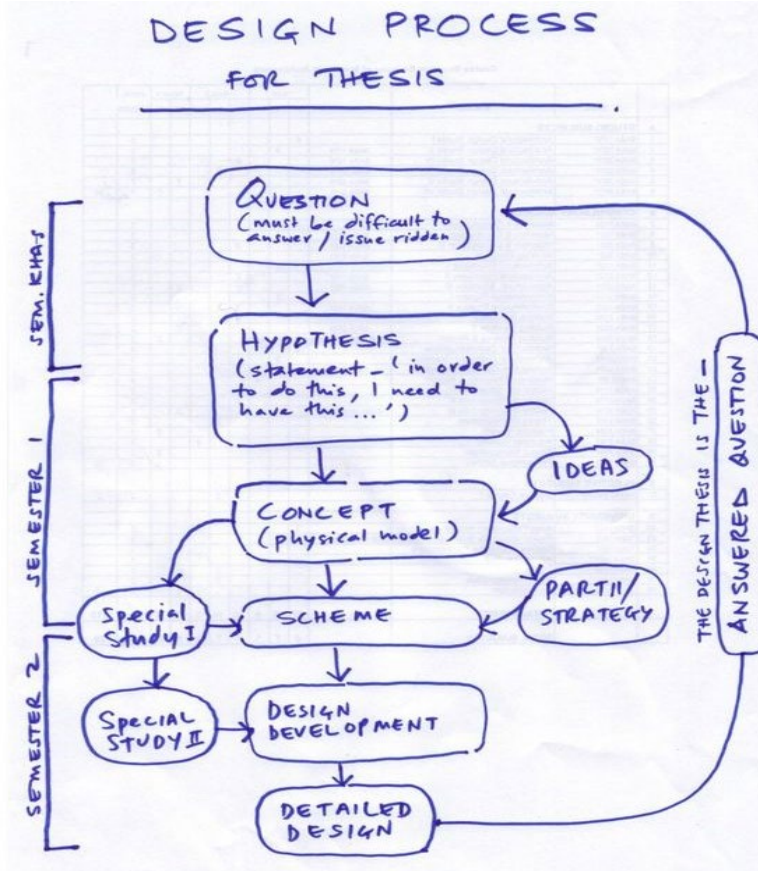 DESIGN PROCESS
FOR THESIS
SEM. KHAS
QUESTION
(must be difficult to
answer / issue ridden)
HYPOTHESIS
(statement - 'in order
to do this, I need to
have this ...')
IDEAS
SEMESTER 1
CONCEPT
(physical model)
PARTII/
STRATEGY
Special
Study I
SCHEME
SEMESTER 2
SPECIAL
STUDY II
DESIGN
DEVELOPMENT
DETAILED
DESIGN
THE DESIGN THESIS IS THE -
ANSWERED QUESTION